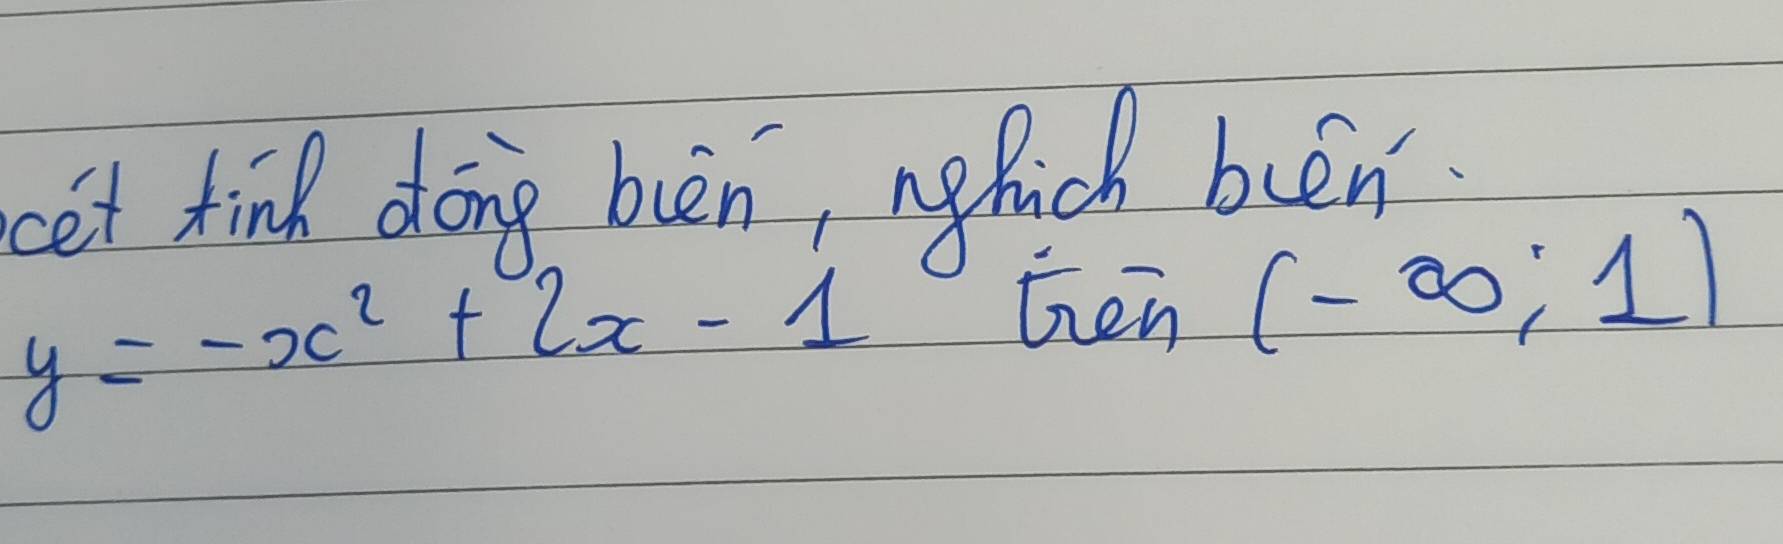 xét tính đồng biến, nghịch biến.
y = -x² + 2x - 1 trên (- ∞; 1)